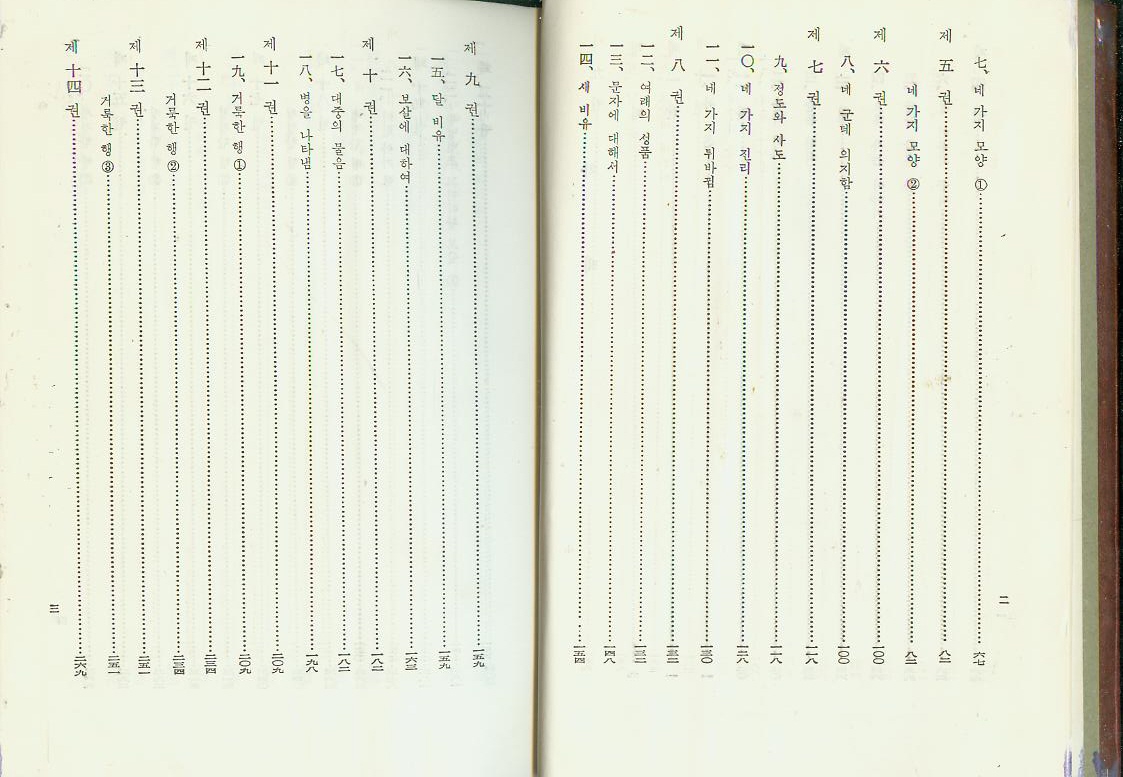 七、네 가지 모양 ①……六七
제 五 권……八二
네 가지 모양 ②……八二
제 六 권……一〇〇
八、네 군데 의지함……一〇〇
제 七 권……一一八
九、정도와 사도……一一八
一〇、네 가지 진리……一二八
一一、네 가지 뒤바뀜……一三〇
제 八 권……一三二
一二、여래의 성품……一三二
一三、문자에 대해서……一四八
一四、새 비유……一五四
二
제 九 권……一五九
一五、달 비유……一五九
一六、보살에 대하여……一六三
제 十 권……一八二
一七、대중의 물음……一八二
一八、병을 나타냄……一九八
제 十一 권……二〇九
一九、거룩한 행 ①……二〇九
제 十二 권……二三四
거룩한 행 ②……二三四
제 十三 권……二五一
거룩한 행 ③……二五一
제 十四 권……二六九
三